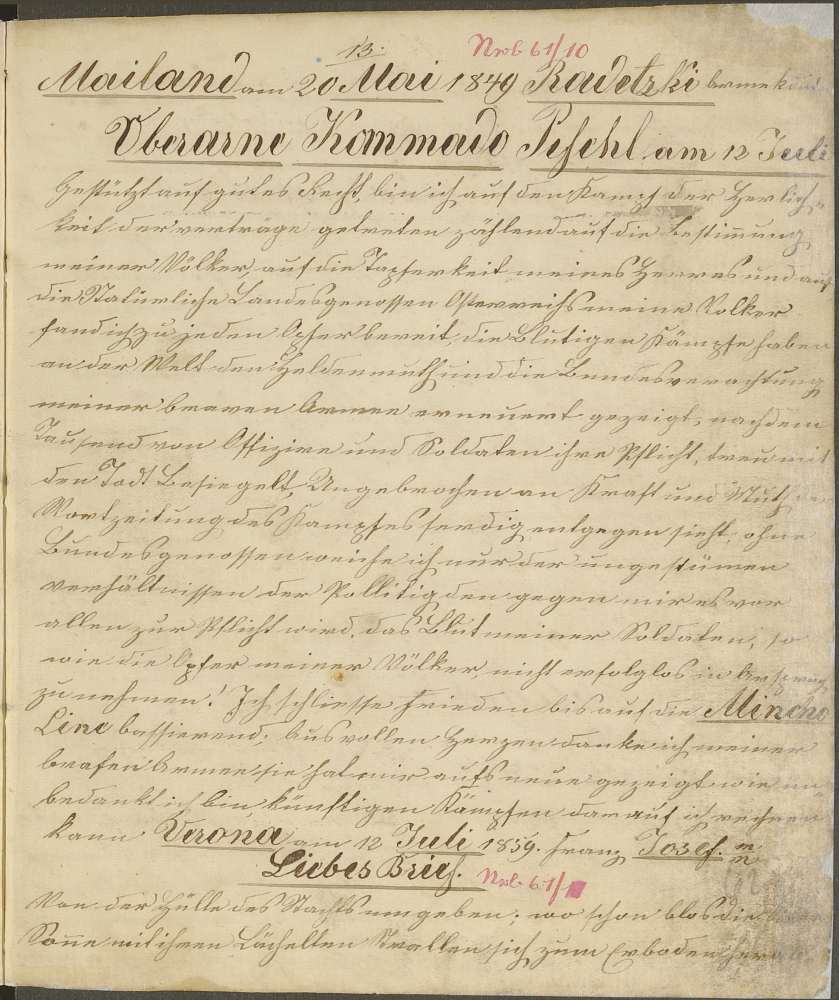 13.
Nrb 61/10
Mailand am 20 Mai 1849 Radetzki Armek
Oberarne Kommado Peschl am 12 Juli
Gestützt auf gutes Recht, bin ich auf den Kampf der Herlich-
keit der verträge getreten zählend auf die Bestimung
meiner Völker, auf die Tapferkeit meines Heeres und auf
die Natürliche Landesgenossen Osterreichs meine Volker
fand ich zu jeden Opfer bereit, die Blutigen Kämpfe haben
an der Welt den Heldenmuth und die Bendesverachtung
meiner braven Armee erneuert gezeigt, nachdem
Tausend von Offizire und Soldaten ihre Pflicht, treu mit
den Todt Besiegelt, Ungebrochen an Kraft und Muth der
Wortzeitung des Kampfes ferdig entgegen sieht, ohne
Bundesgenossen weiche ich nur der ungestümen
verhältnissen der Pollitig den gegen mir es vor
allen zur Pflicht wird, das Blut meiner Soldaten, so
wie die Opfer meiner Völker, nicht erfolglos in Anspruch
zu nehmen! Ich schliesse Frieden bis auf die Mincho
Line bassierend; Aus vollen Herzen danke ich meiner
brafen Armee sie hat mir aufs neue gezeigt wie un-
bedankt ich bin, künftigen Kämpfen darauf ich rechnen
kann Verona am 12 Juli 1859. Franz Josef. m/m
Liebes Brief. Nrb. 61/
Von der Hülle des Nachts umgeben; wo schon blos die
Sonne mit ihren Lächelten Strallen sich zum Erboden